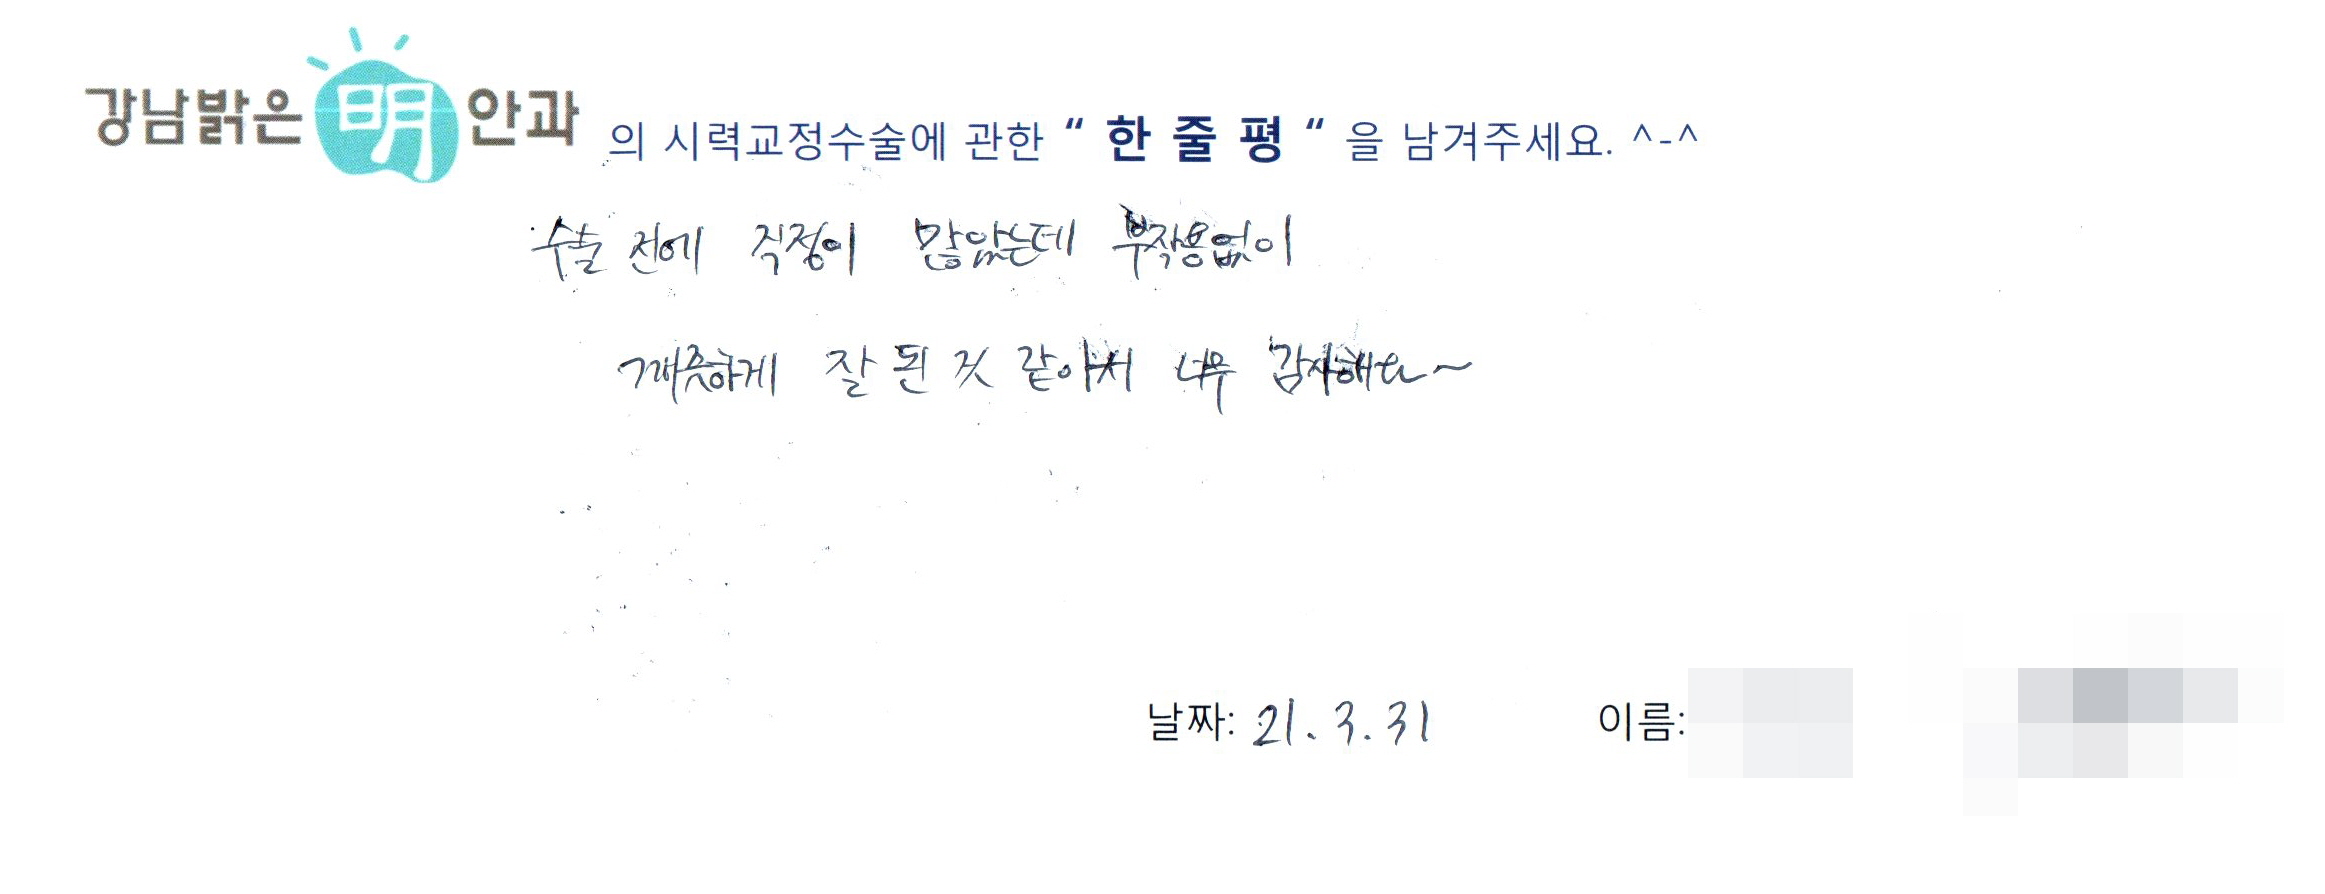 강남밝은 明 안과 의 시력교정수술에 관한 “ 한 줄 평 “ 을 남겨주세요. ^-^
수술 전에 걱정이 많았는데 부작용없이
깨끗하게 잘 된 것 같아서 너무 감사해요~
날짜: 21.3.31 이름: